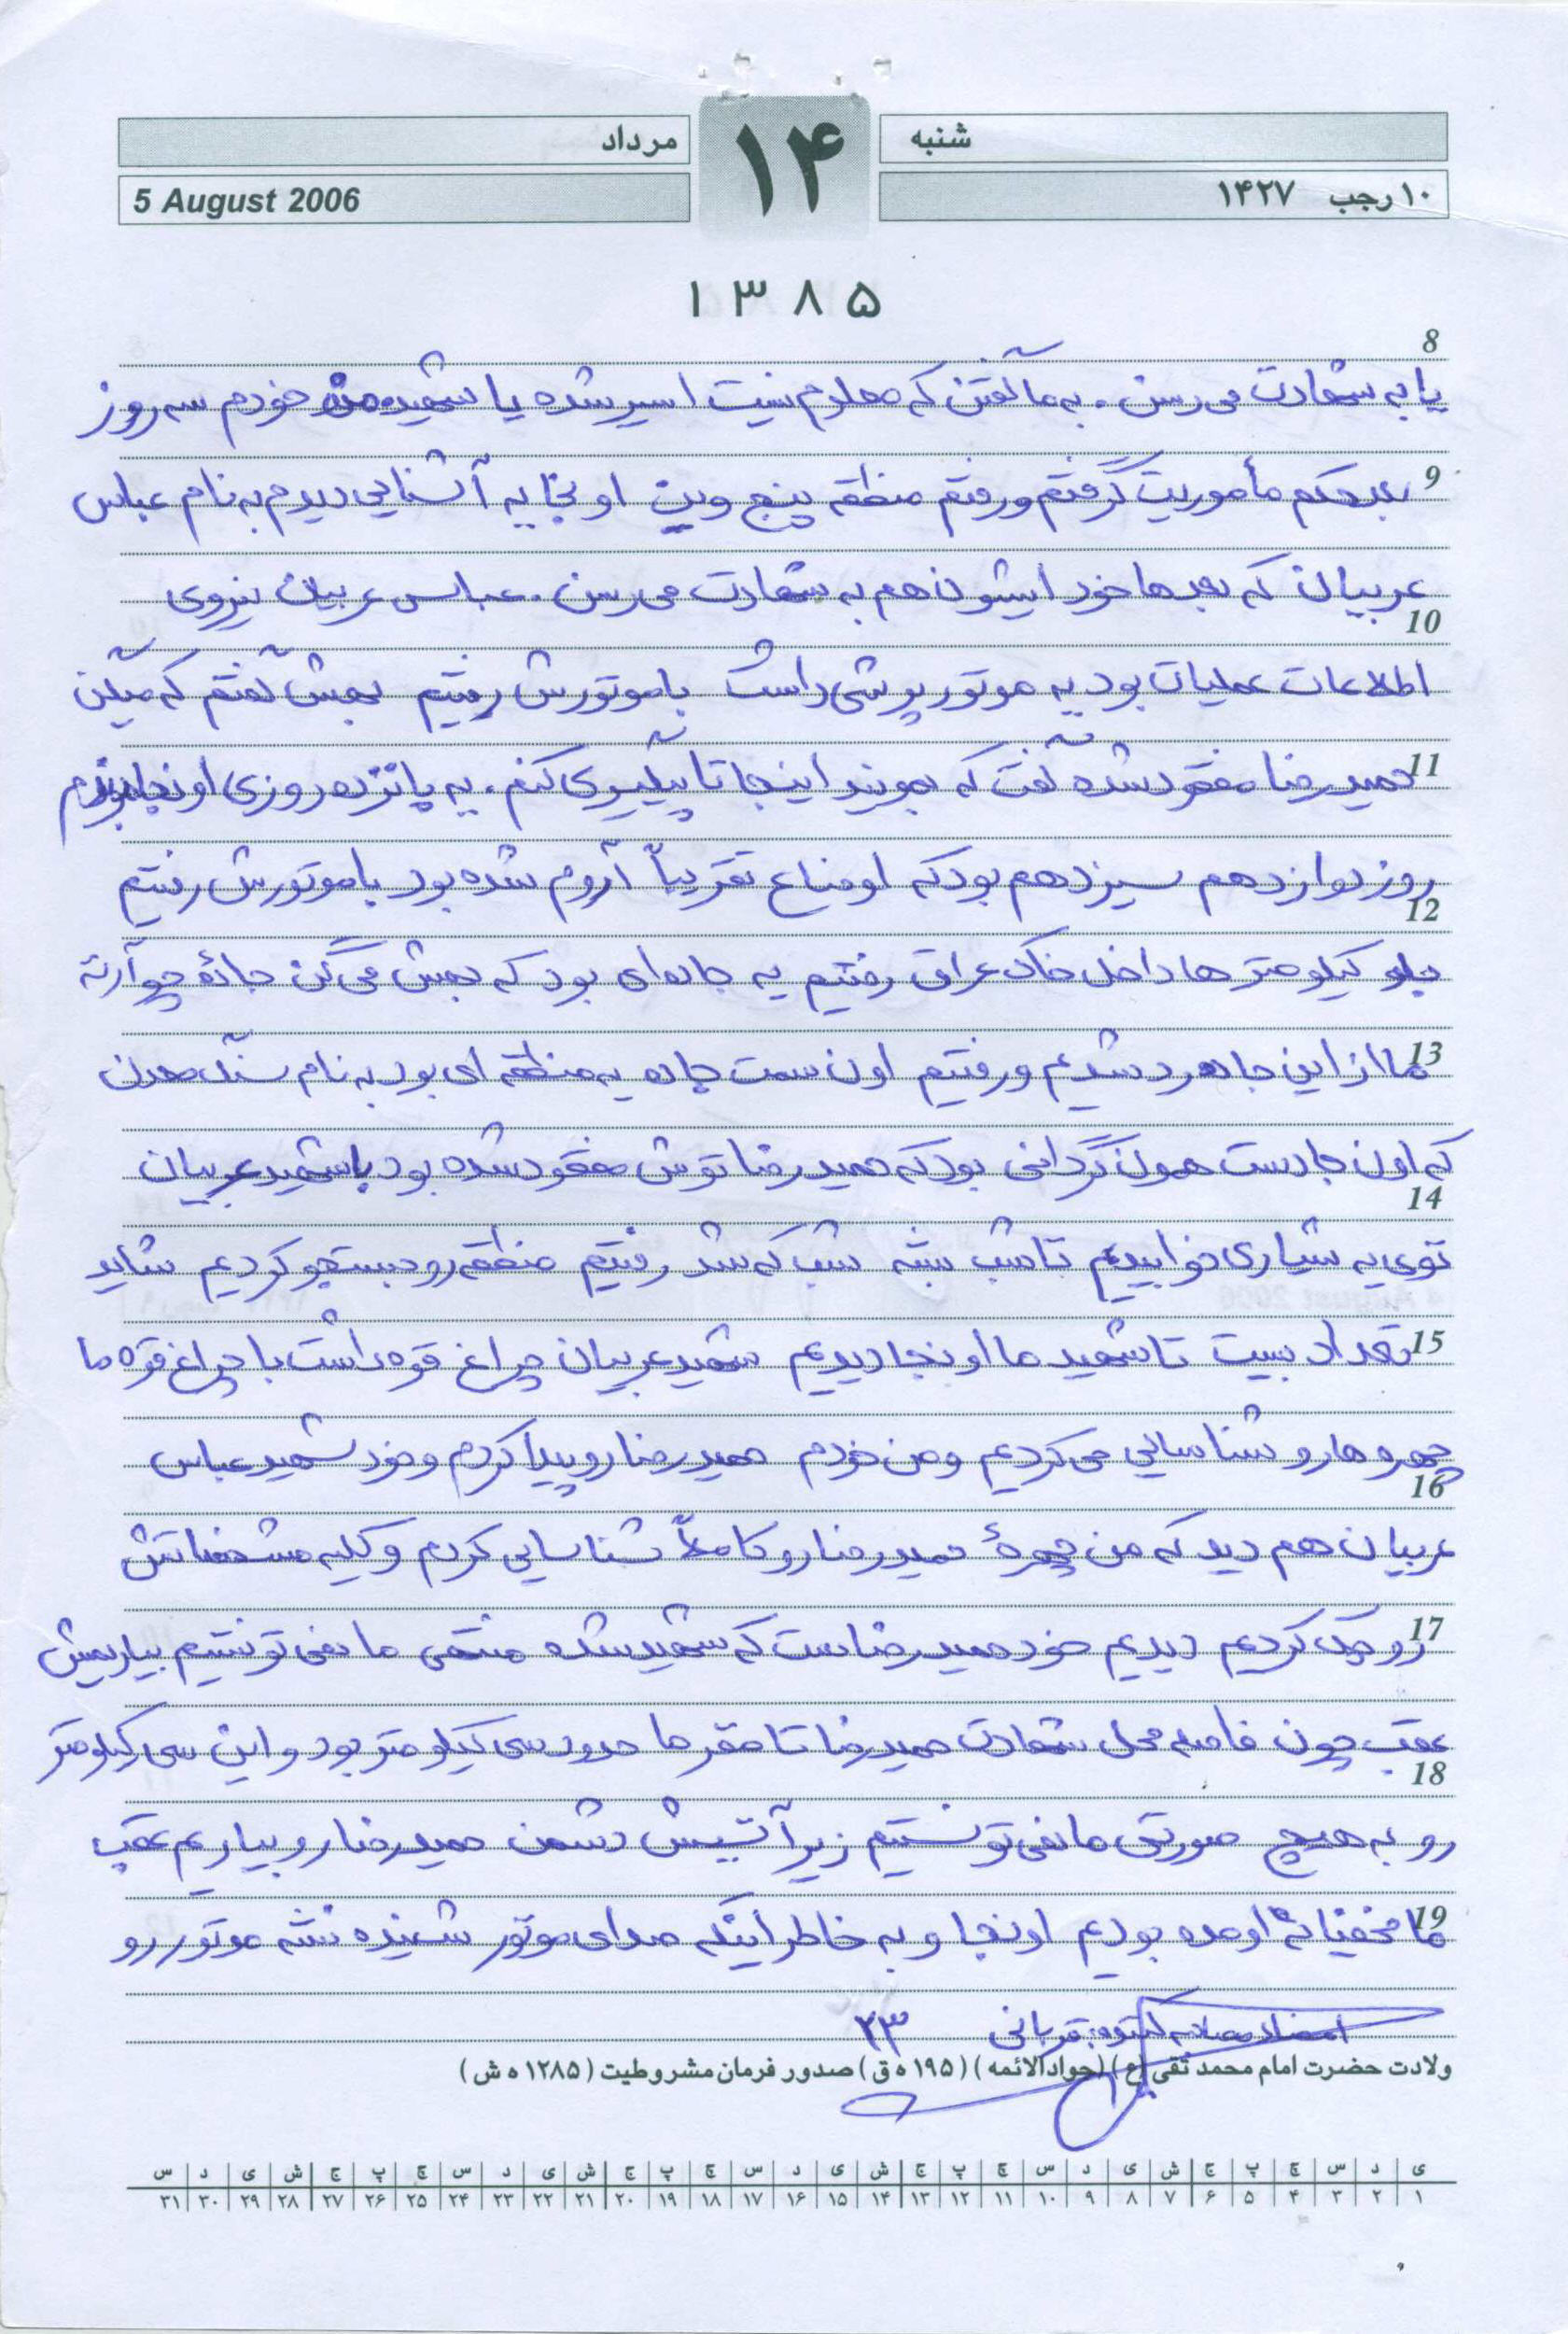 شنبه ۱۴ مرداد
۱۰ رجب ۱۴۲۷ 5 August 2006
۱۳۸۵
8
یا به شهادت می رسن. به ما گفتن که معلوم نیست اسیر شده یا شهید من خودم سه روز
9 بعد حکم مأموریت گرفتم و رفتم منطقه پنج وین اونجا یه آشنایی دیدم به نام عباس
عربیان که بعدها خود ایشون هم به شهادت می رسن. عباس عربیان نیروی
10
اطلاعات عملیات بود یه موتور پرشی داشت با موتورش رفتیم بهش گفتم که میگن
11 حمیدرضا مفقود شده گفت که بمونید اینجا تا پیگیری کنم. یه پانزده روزی اونجا بودم
روز دوازدهم سیزدهم بود که اوضاع تقریباً آروم شده بود با موتورش رفتیم
12
جلو کیلومترها داخل خاک عراق رفتیم یه جاده ای بود که بهش می گن جادۀ چوآرته
13 ما از این جاده رد شدیم و رفتیم اون سمت جاده یه منطقه ای بود به نام سنگ معدن
که اون جا دست همون گردانی بود که حمیدرضا توش مفقود شده بود با شهید عربیان
14
توی یه شیاری خوابیدیم تا شب بشه شب که شد رفتیم منطقه رو جستجو کردیم شاید
15 تعداد بیست تا شهید ما اونجا دیدیم شهید عربیان چراغ قوه داشت با چراغ قوه ما
چهره ها رو شناسایی می کردیم و من خودم حمیدرضا رو پیدا کردم و خود شهید عباس
16
عربیان هم دید که من چهرۀ حمیدرضا رو کاملاً شناسایی کردم و کلیه مشخصاتش
17 رو چک کردیم دیدیم خود حمیدرضاست که شهید شده منتهی ما نمی تونستیم بیاریمش
عقب چون فاصله محل شهادت حمیدرضا تا مقر ما حدود سی کیلومتر بود و این سی کیلومتر
18
رو به هیچ صورتی ما نمی تونستیم زیر آتیش دشمن حمیدرضا رو بیاریم عقب
19 ما مخفیانه اومده بودیم اونجا و به خاطر اینکه صدای موتور شنیده نشه موتور رو
امضاء مصاحبه کننده: قربانی ۲۳
ولادت حضرت امام محمد تقی (ع) (جوادالائمه) (۱۹۵ ه ق) صدور فرمان مشروطیت (۱۲۸۵ ه ش)
ی د س چ پ ج ش ی د س چ پ ج ش ی د س چ پ ج ش ی د س چ پ ج ش ی د س
۱ ۲ ۳ ۴ ۵ ۶ ۷ ۸ ۹ ۱۰ ۱۱ ۱۲ ۱۳ ۱۴ ۱۵ ۱۶ ۱۷ ۱۸ ۱۹ ۲۰ ۲۱ ۲۲ ۲۳ ۲۴ ۲۵ ۲۶ ۲۷ ۲۸ ۲۹ ۳۰ ۳۱